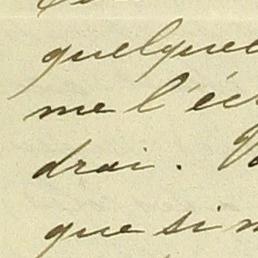 quelque
me l'éc
drai. V
que si n